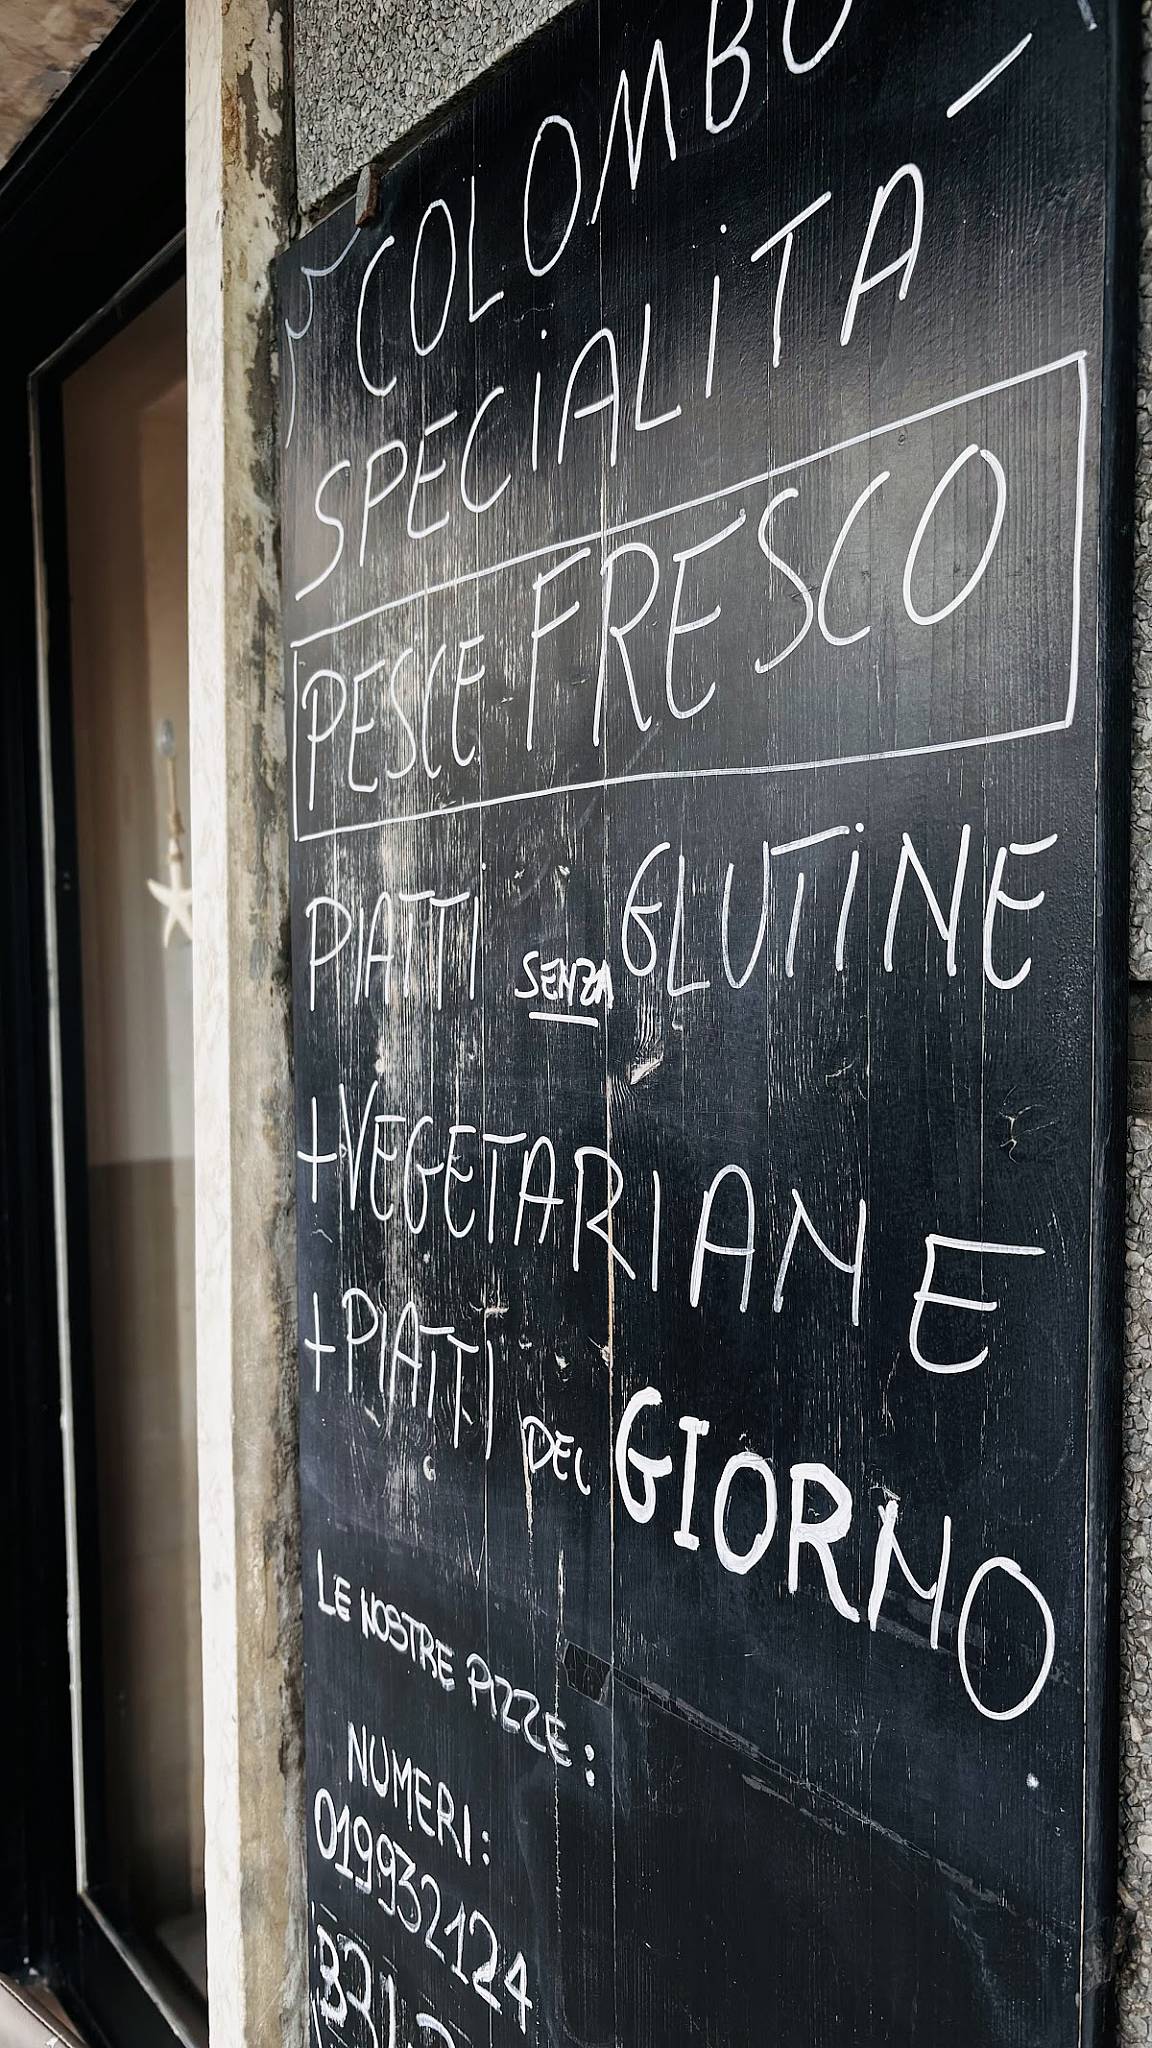 COLOMBO
SPECIALITA
PESCE FRESCO
PIATTI SENZA GLUTINE
+VEGETARIANE
+PIATTI DEL GIORNO
LE NOSTRE PIZZE:
NUMERI:
019932124